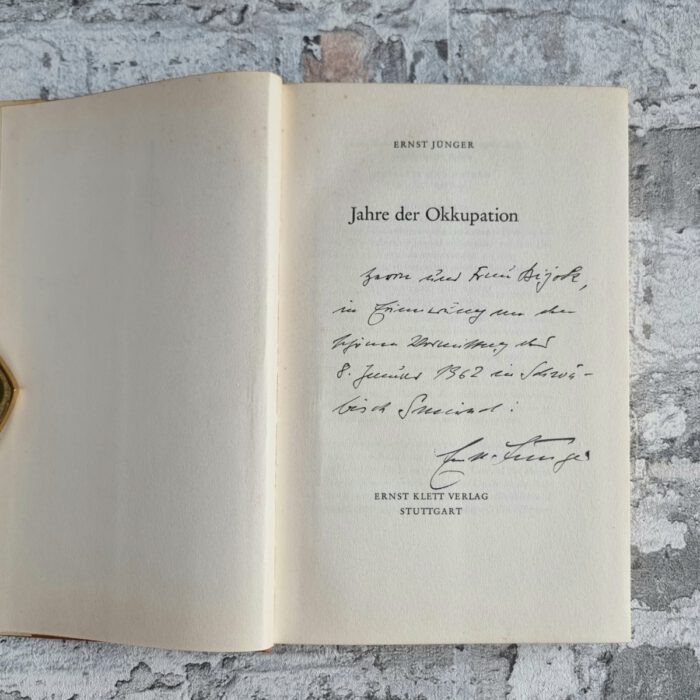 ERNST JÜNGER
Jahre der Okkupation
Herrn und Frau
in Erinnerung an den
schönen Vormittag des
8. Januar 1962 in Schwä-
bisch Gmünd:
Ernst Jünger
ERNST KLETT VERLAG
STUTTGART